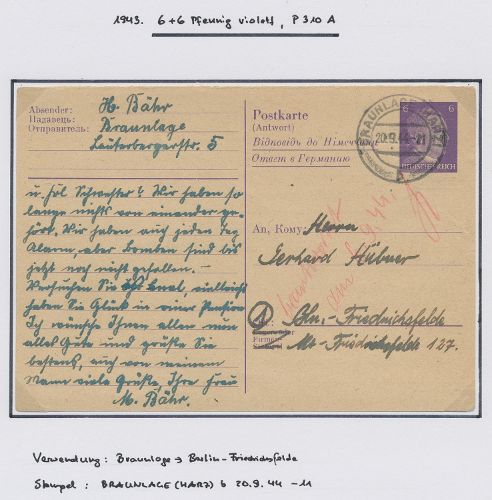 1943. 6+6 Pfennig violett, P310 A
Absender: H. Bähr
Надавець: Braunlage
Отправитель: Lauterbergerstr. 5
u. frl Schwester! Wir haben so
lange nichts von einander ge-
hört. Wir haben auch jeden Tag
Alarm, aber Bomben sind bis
jetzt noch nicht gefallen.
Versuchen Sie mal, vielleicht
haben Sie Glück in einer Pension
Ich wünsche Ihnen allen nun
alles Gute und grüße Sie
bestens, auch von meinem
Mann viele Grüße, Ihre Frau
M. Bähr.
Postkarte
(Antwort)
Відповідь до Німеччини
Ответ в Германию
6 6
DEUTSCHES REICH
BRAUNLAGE (HARZ)
20.9.44-11
b
An, Кому: Herrn
Gerhard Hübner
Bln.-Friedrichsfelde
Alt-Friedrichsfelde 127.
Verwendung: Braunlage → Berlin-Friedrichsfelde
Stempel: BRAUNLAGE (HARZ) b 20.9.44 -11